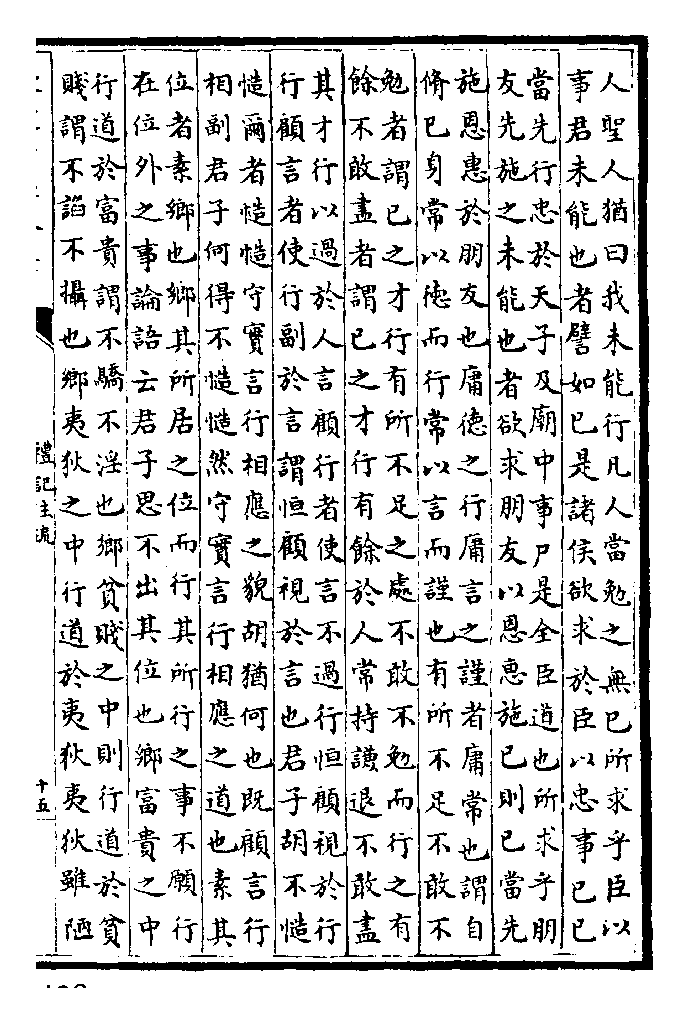 人聖人猶曰我未能行凡人當勉之無已所求乎臣以
事君未能也者譬如已是諸侯欲求於臣以忠事已已
當先行忠於天子及廟中事尸是全臣道也所求乎朋
友先施之未能也者欲求朋友以恩惠施已則已當先
施恩惠於朋友也庸德之行庸言之謹者庸常也謂自
脩已身常以德而行常以言而謹也有所不足不敢不
勉者謂已之才行有所不足之處不敢不勉而行之有
餘不敢盡者謂已之才行有餘於人常持謙退不敢盡
其才行以過於人言顧行者使言不過行恒顧視於行
行顧言者使行副於言謂恒顧視於言也君子胡不慥
慥爾者慥慥守實言行相應之貌胡猶何也既顧言行
相副君子何得不慥慥然守實言行相應之道也素其
位者素鄉也鄉其所居之位而行其所行之事不願行
在位外之事論語云君子思不出其位也鄉富貴之中
行道於富貴謂不驕不淫也鄉貧賤之中則行道於貧
賤謂不諂不攝也鄉夷狄之中行道於夷狄夷狄雖陋
禮記注疏
十五